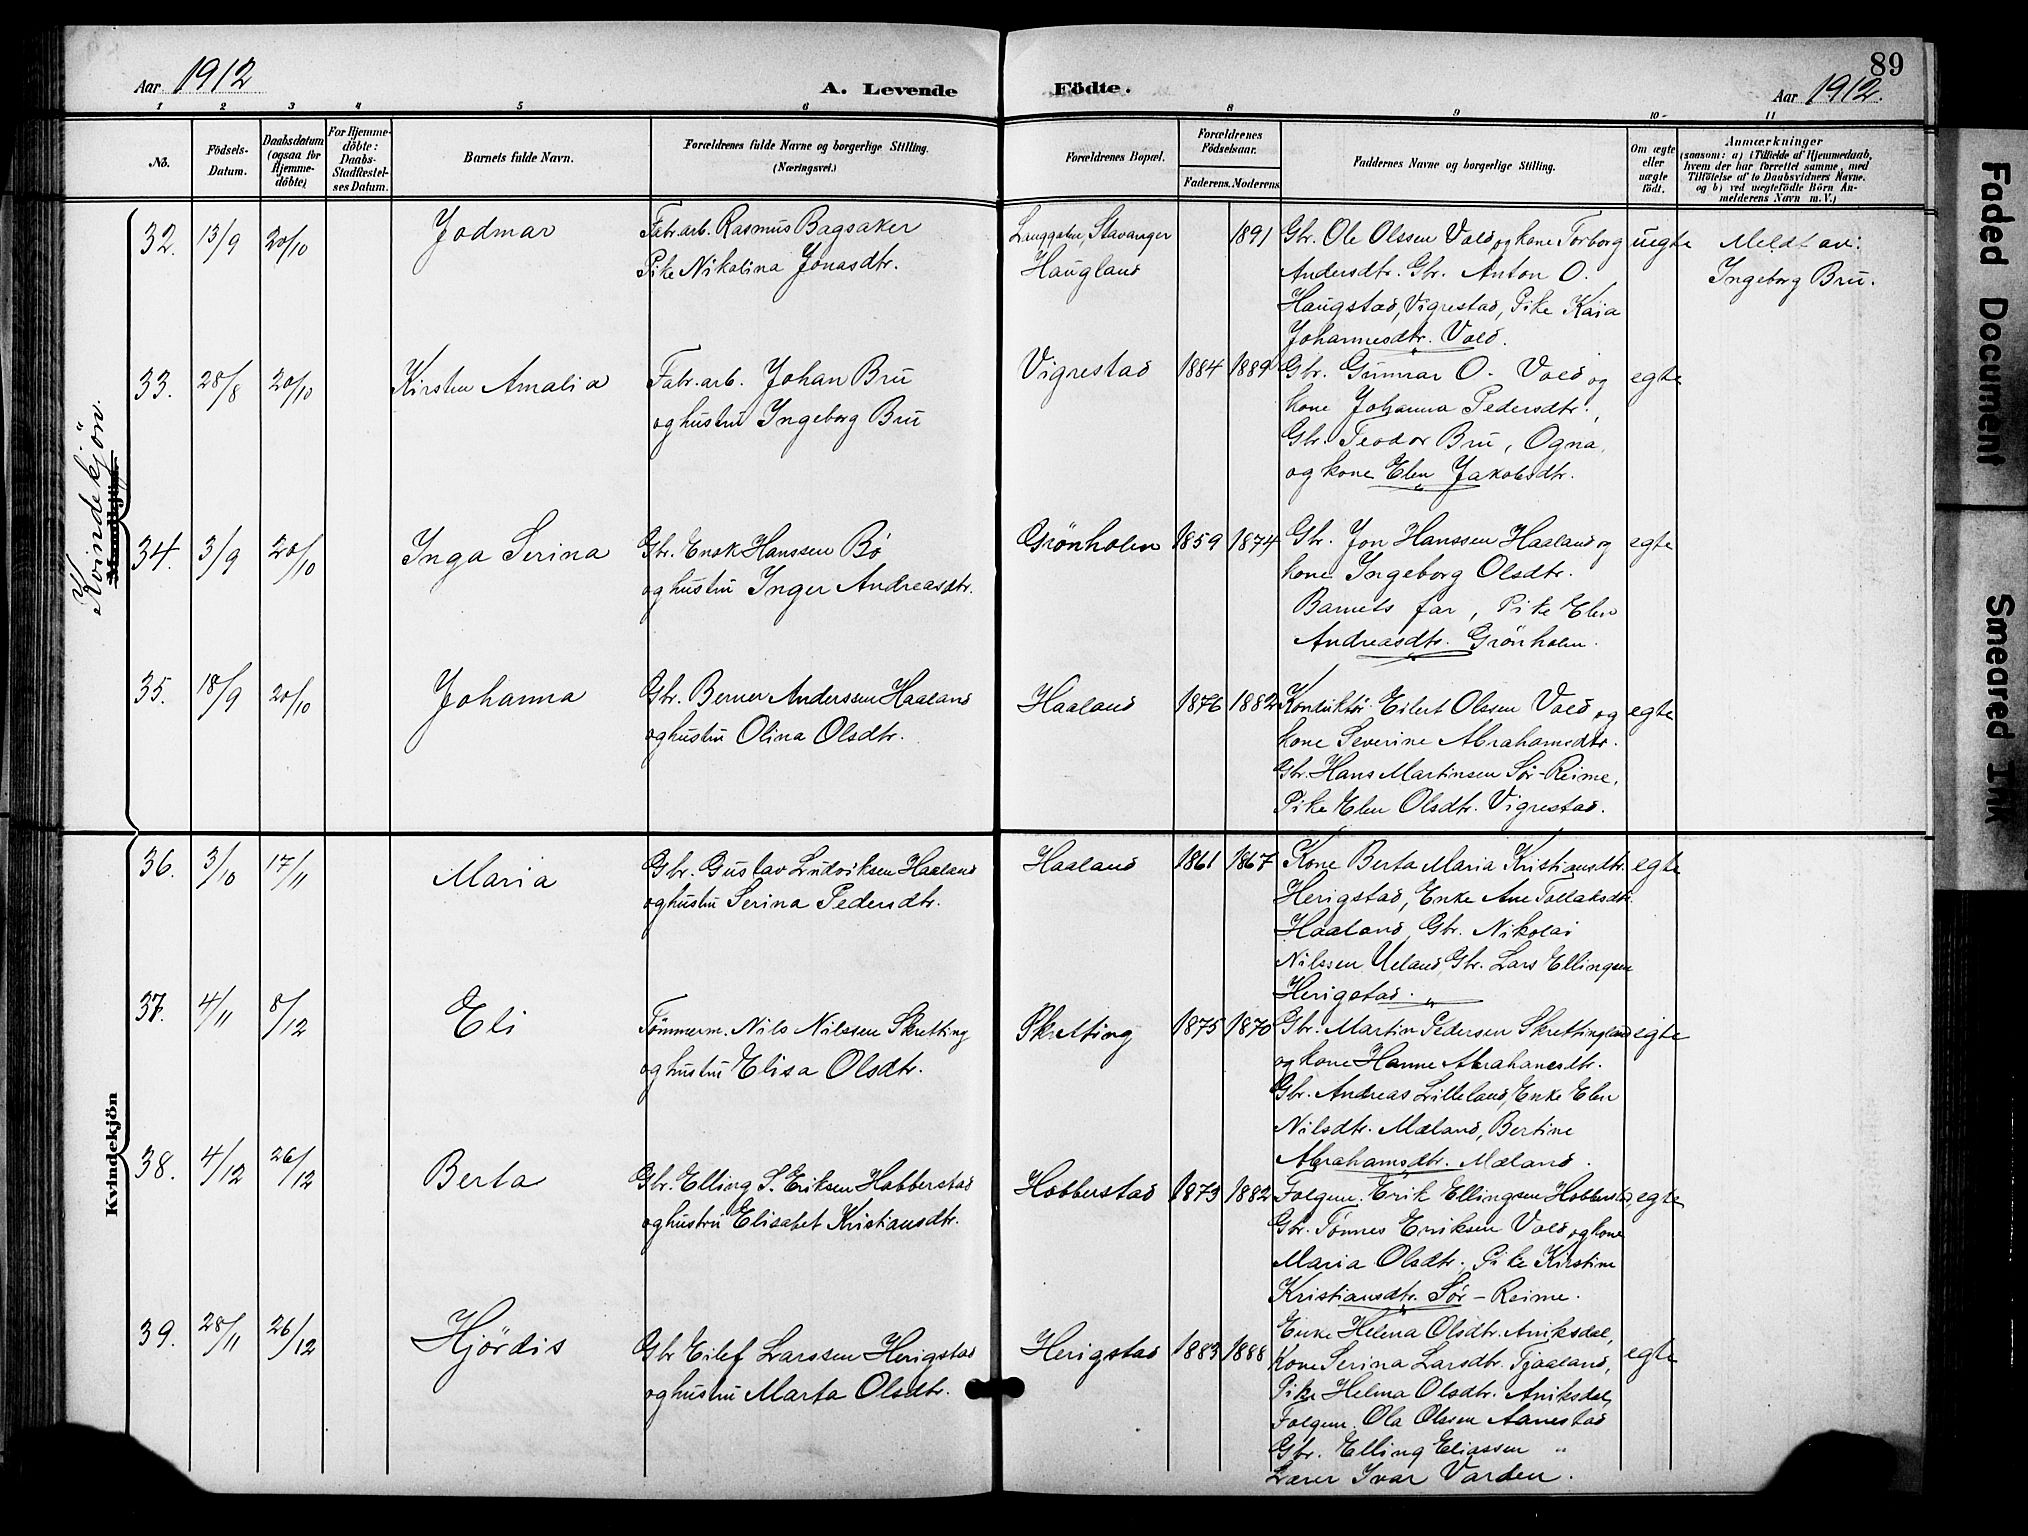 Aar 1912
A. Levende
Födte.
89
Aar 1912.
1 2 3 4 5 6 8 9 10 11
No.
Födsels-Datum.
Daabsdatum (ogsaa for Hjemme-döbte)
For Hjemme-döbte: Daabs-Stadfestel-ses Datum.
Barnets fulde Navn.
Forældrenes fulde Navne og borgerlige Stilling.
(Næringsvei.)
Forældrenes Bopæl.
Forældrenes Födselsaar.
Faderens. Moderens.
Faddernes Navne og borgerlige Stilling.
Om ægte eller uægte födt.
Anmærkninger
(saasom: a) i Tilfælde af Hjemmedaab,
hvem der har forrettet samme, med
Tilföielse af to Daabsvidners Navne.
og b) ved uægtefödte Börn An-
melderens Navn m. V.)
Kvindekjön.
Mandkjön.
32. 13/9 20/10 Jodmar
Fabr.arb. Rasmus Bagsaker
Pike Nikolina Jonasdtr.
Langgaten, Stavanger
Haugland
1891
Gbr. Ole Olssen Vold og kone Torborg
Andersdtr. Gbr. Anton O.
Haugstad, Vigrestad, Pike Kaia
Johannesdtr. Vold.
uegte
Meldt av:
Ingeborg Bru.
33. 28/8 20/10 Kirsten Amalia
Fabr.arb. Johan Bru
og hustru Ingeborg Bru
Vigrestad 1884 1889
Gbr. Gunnar O. Vold og
kone Johanna Pedersdtr.,
Gbr. Teodor Bru, Ogna,
og kone Elen Jakobsdtr.
egte
34. 3/9 20/10 Inga Serina
Gbr. Enok Hanssen Bø
og hustru Inger Andreasdtr.
Grönholen 1859 1874
Gbr. Jon Hanssen Haaland og
kone Ingeborg Olsdtr.
Barnets far, Pike Elen
Andreasdtr. Grönholen.
egte
35. 18/9 20/10 Johanna
Gbr. Berner Anderssen Haaland
og hustru Olina Olsdtr.
Haaland 1876 1882
Konduktör Eilert Olssen Vold og
kone Severine Abrahamsdtr.
Gbr. Hans Martinsen Sör-Reime,
Pike Elen Olsdtr. Vigrestad.
egte
Kvindekjön
36. 3/10 17/11 Maria
Gbr. Gustav Ludviksen Haaland
og hustru Serina Pedersdtr.
Haaland 1861 1867
Kone Berta Maria Kristiansdtr.
Herigstad, Enke Ane Tollaksdtr.
Haaland, Gbr. Nikolai
Nilssen Ueland, Gbr. Lars Ellingsen
Herigstad.
egte
37. 4/11 8/12 Eli
Tömmerm. Nils Nilssen Skretting
og hustru Elisa Olsdtr.
Skretting 1875 1870
Gbr. Martin Pedersen Skrettingland
og kone Hanne Abrahamsdtr.
Gbr. Andreas Lilleland, Enke Elen
Nilsdtr. Mæland, Bertine
Abrahamsdtr. Mæland.
egte
38. 4/12 26/12 Berta
Gbr. Elling S. Eriksen Hobberstad
og hustru Elisabet Kristiansdtr.
Hobberstad 1873 1882
Folgem. Erik Ellingsen Hobberstad,
Gbr. Tönnes Eriksen Vold og kone
Maria Olsdtr., Pike Kirstine
Kristiansdtr. Sör-Reime.
egte
39. 28/11 26/12 Hjördis
Gbr Eilef Larssen Herigstad
og hustru Marta Olsdtr.
Herigstad 1883 1888
Enke Helena Olsdtr. Aniksdal,
Kone Serina Larsdtr. Tjaaland,
Pike Helena Olsdtr. Aniksdal,
Folgem. Ola Olssen Aanestad
Gbr. Elling Eliassen "
Lærer Ivar Varden.
egte
Faded Document
Smeared Ink